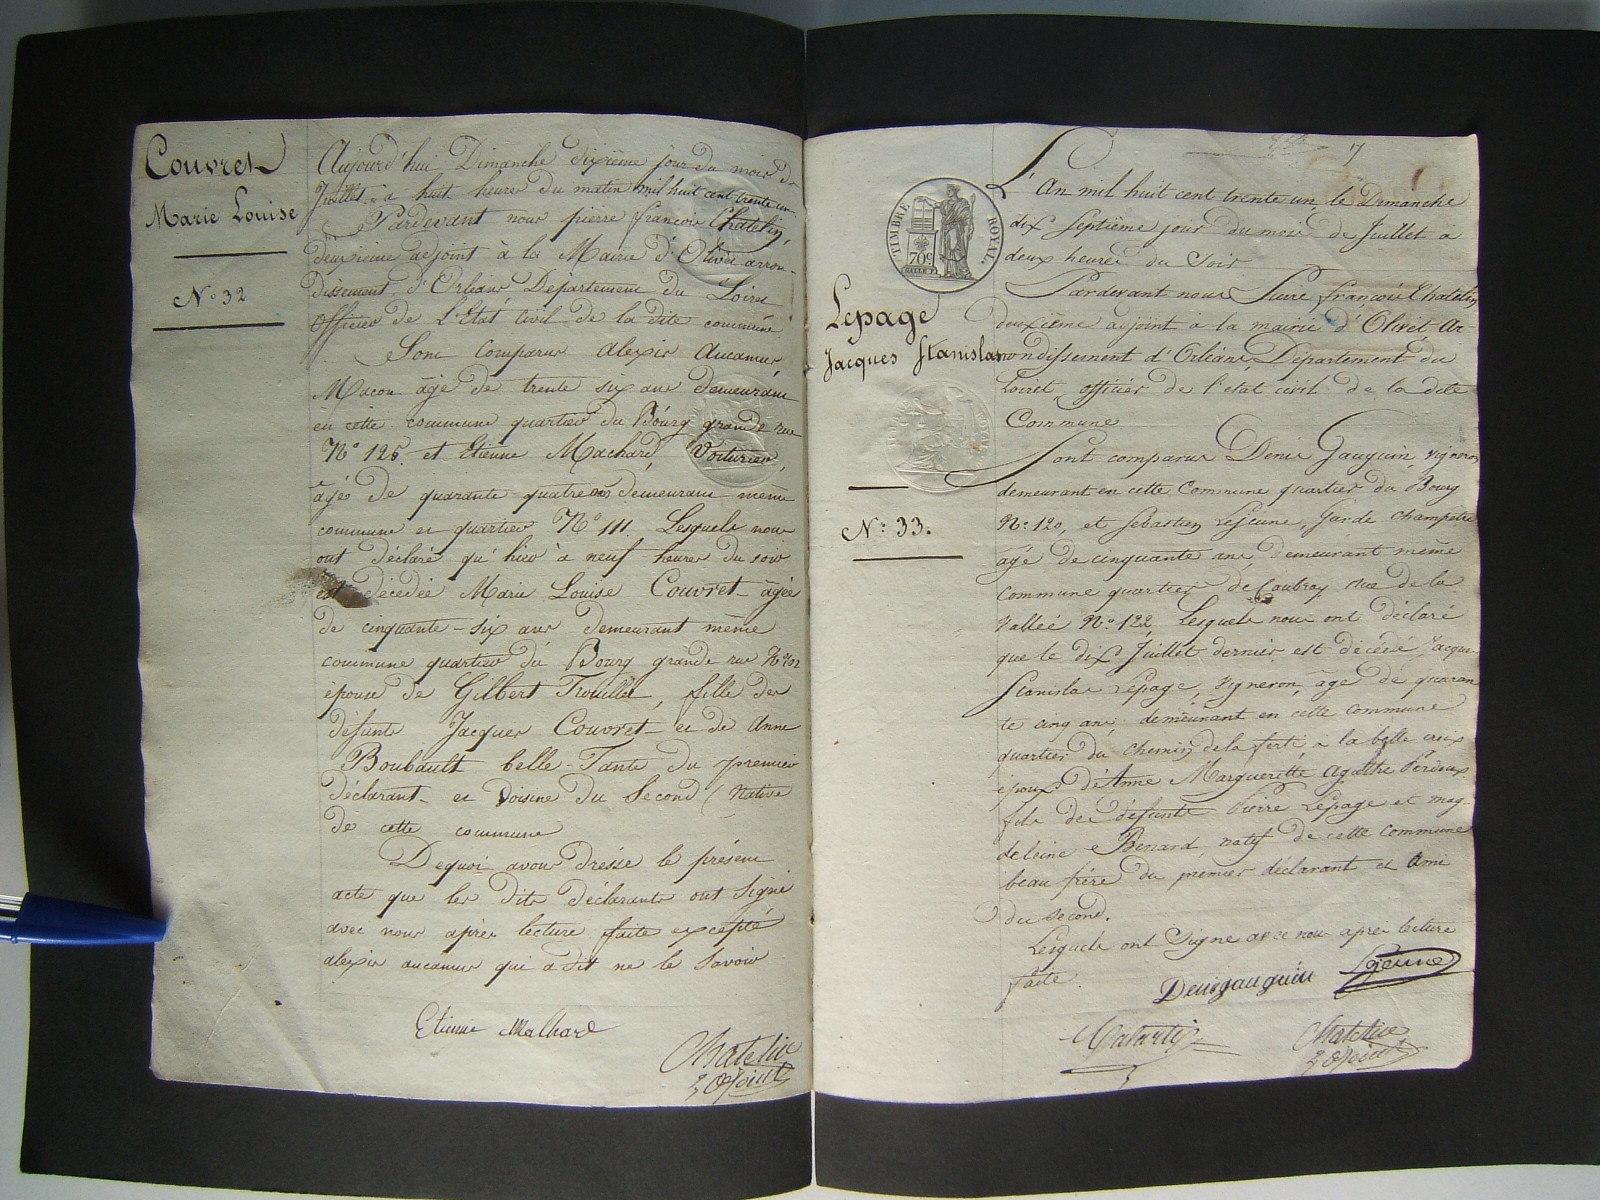 Couvret
Marie Louise
N° 32
Aujourd'hui Dimanche dixième jour du mois de
Juillet à huit heures du matin mil huit cent trente un
Pardevant nous pierre francois Chatelin,
deuxieme adjoint à la Mairie d'Olivet arron-
dissement d'Orléans Département du Loiret
Officier de l'Etat Civil de la dite commune
Sont comparus alexis Aucamus
Macon âgé de trente six ans demeurant
en cette commune quartier du Bourg grande rue
N° 125. et Etienne Machard, Voiturier,
âgés de quarante quatre ans demeurant même
commune et quartier N° 111. Lesquels nous
ont déclaré qu'hier à neuf heures du soir
est décédée Marie Louise Couvret âgée
de cinquante-six ans demeurant même
commune quartier du Bourg grande rue
épouse de Gilbert Trouillet, fille des
défunts Jacques Couvret et de Anne
Boubault belle-Tante du premier
déclarant et Voisine du Second (Native
de cette commune
Dequoi avons dressé le présent
acte que les dits déclarants ont signé
avec nous après lecture faite excepté
alexis aucamus qui a dit ne le Savoir
Etienne Malhard
Chatelin
2 adjoint
17
TIMBRE ROYAL.
70c
L'An mil huit cent trente un le Dimanche
dix Septième jour du mois de Juillet à
deux heures du Soir
Pardevant nous Pierre françois Chatelin
deuxième adjoint à la mairie d'Olivet Ar-
Lepage
Jacques Stanislas
rondissement d'Orléans, Département du
Loiret, officier de l'état civil de la dite
Commune
Sont comparus Denis Gauguin, vigneron
demeurant en cette Commune quartier du Bourg
N° 33.
N° 120, et Sébastien Lejeune, Garde champêtre
agé de cinquante ans, demeurant même
commune quartier de Caubray rue de la
Vallée N° 122 Lesquels nous ont déclaré
que le dix Juillet dernier est décédé Jacques
Stanislas Lepage, Vigneron, âgé de quaran
te cinq ans demeurant en cette commune
quartier du chemin de la ferté à la belle croix
époux d'Anne Marguerite Agathe
fils de défunts Pierre Lepage et mag
deleine Benard, natif de cette commune
beau frère du premier déclarant et Ami
du Second.
Lesquels ont Signé avec nous après lecture
faite.
Denis gauguin Lejeune
Chatelin
2 adjoint